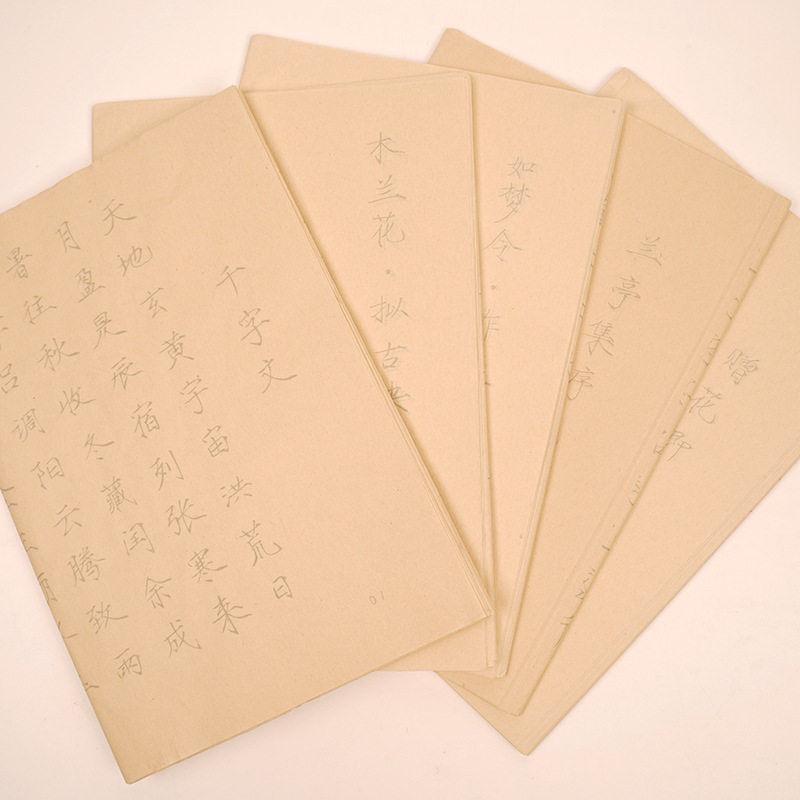 千字文
天地玄黄宇宙洪荒日
月盈昃辰宿列张寒来
暑往秋收冬藏闰余成
吕调阳云腾致雨
01
木兰花·拟古决
如梦令·昨
兰亭集序
赠花卿